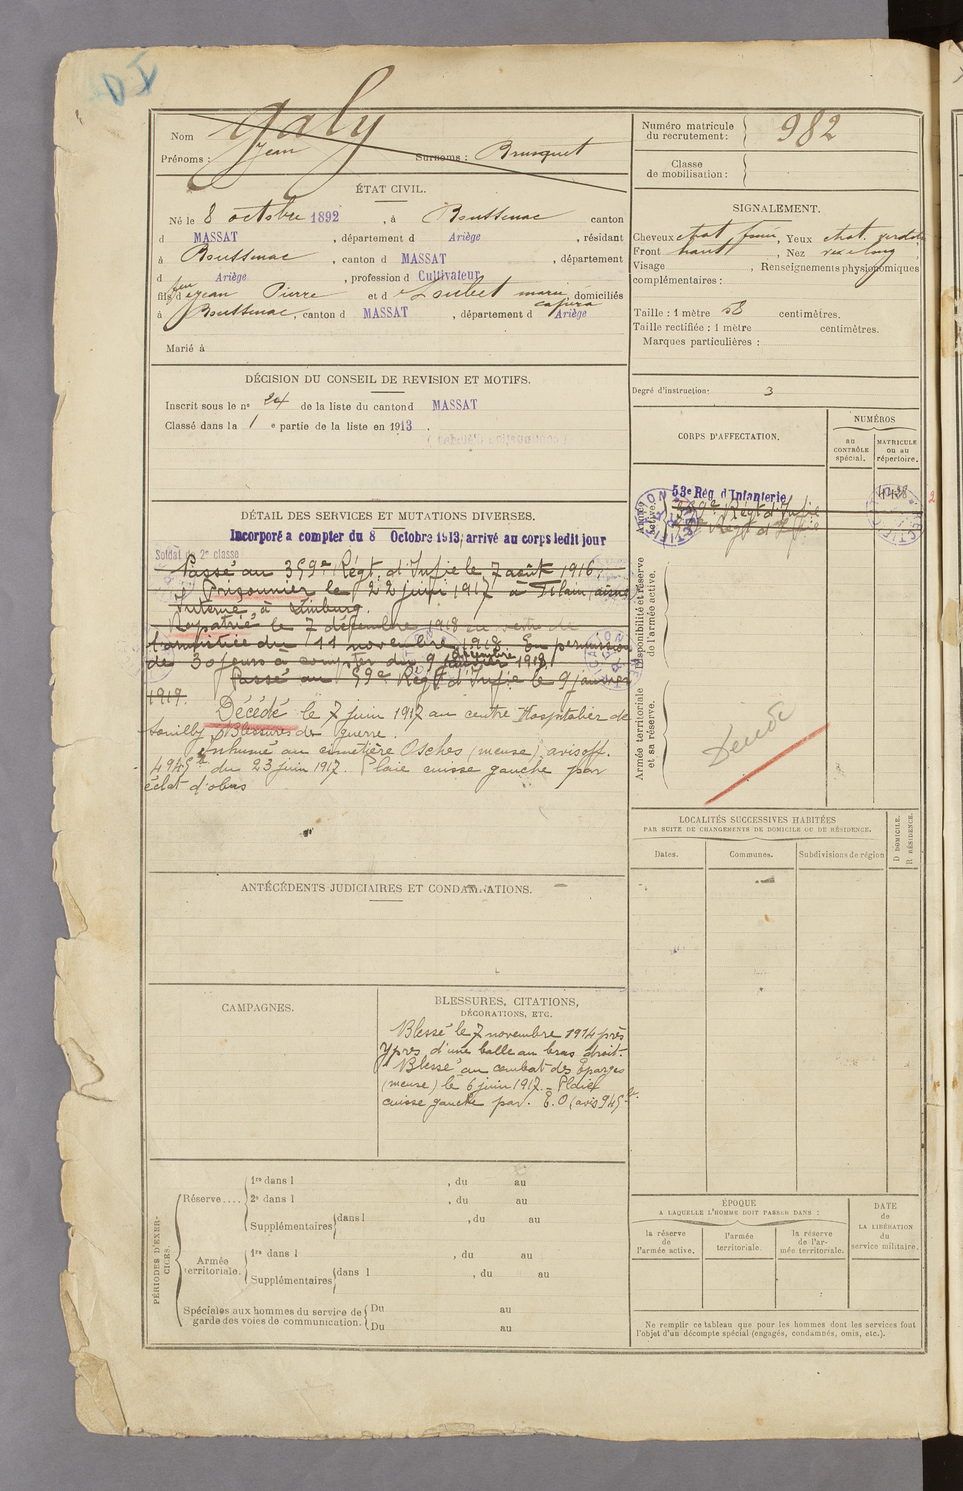 Nom Galy
Prénoms : Jean Surnoms : Brusquet
Numéro matricule du recrutement : 982
Classe de mobilisation :
ÉTAT CIVIL.
Né le 8 octobre 1892, à Boussenac canton
d MASSAT, département d Ariège, résidant
à Boussenac, canton d MASSAT, département
d Ariège, profession d Cultivateur
fils d feu Jean Pierre et d Loubet marie domiciliés
à Boussenac, canton d MASSAT, département d Ariège
Marié à
SIGNALEMENT.
Cheveux chat. foncé, Yeux chat. verdâtre
Front haut, Nez
Visage , Renseignements physionomiques
complémentaires :
Taille : 1 mètre 58 centimètres.
Taille rectifiée : 1 mètre centimètres.
Marques particulières :
Degré d'instruction : 3
DÉCISION DU CONSEIL DE REVISION ET MOTIFS.
Inscrit sous le n° 24 de la liste du canton d MASSAT
Classé dans la 1 e partie de la liste en 1913.
CORPS D'AFFECTATION.
NUMÉROS
au CONTRÔLE spécial.
MATRICULE ou au répertoire.
Armée active.
53e Rég. d'Infanterie
4438
359e Régt d'Infie
Régt d'Infie
Disponibilité et réserve de l'armée active.
Armée territoriale et sa réserve.
DÉTAIL DES SERVICES ET MUTATIONS DIVERSES.
Incorporé a compter du 8 Octobre 1913, arrivé au corps ledit jour
Soldat de 2e classe
Passé au 359e Régt d'Infie le 7 août 1916.
Prisonnier le 22 juin 1917 à Filain (aisne)
Interné à Limburg.
Rapatrié le 7 décembre 1918 en vertu de
l'armistice du 11 novembre 1918. En permission
de 30 jours à compter du 9 décembre 1918
Passé au 59e Régt d'Infie le 9 janvier
1919.
Décédé le 7 juin 1917 au centre Hospitalier de
Souilly Blessures de guerre.
Inhumé au cimetière Osches (meuse), avis off.
du 23 juin 1917. Plaie cuisse gauche par
éclat d'obus
LOCALITÉS SUCCESSIVES HABITÉES
PAR SUITE DE CHANGEMENTS DE DOMICILE OU DE RÉSIDENCE.
Dates.
Communes.
Subdivisions de région
D DOMICILE.
R RÉSIDENCE.
ANTÉCÉDENTS JUDICIAIRES ET CONDAMNATIONS.
CAMPAGNES.
BLESSURES, CITATIONS,
DÉCORATIONS, ETC.
Blessé le 7 novembre 1914 près
Ypres d'une balle au bras droit.
Blessé au combat des Eparges
(meuse) le 6 juin 1917. - Plaie
cuisse gauche par. E.O (avis
PÉRIODES D'EXERCICES.
Réserve....
1re dans l , du au
2e dans l , du au
Supplémentaires dans l , du au
Armée territoriale.
1re dans l , du au
Supplémentaires dans l , du au
Spéciales aux hommes du service de garde des voies de communication.
Du au
Du au
ÉPOQUE
A LAQUELLE L'HOMME DOIT PASSER DANS :
la réserve de l'armée active.
l'armée territoriale.
la réserve de l'armée territoriale.
DATE de LA LIBÉRATION du service militaire.
Ne remplir ce tableau que pour les hommes dont les services font
l'objet d'un décompte spécial (engagés, condamnés, omis, etc.).